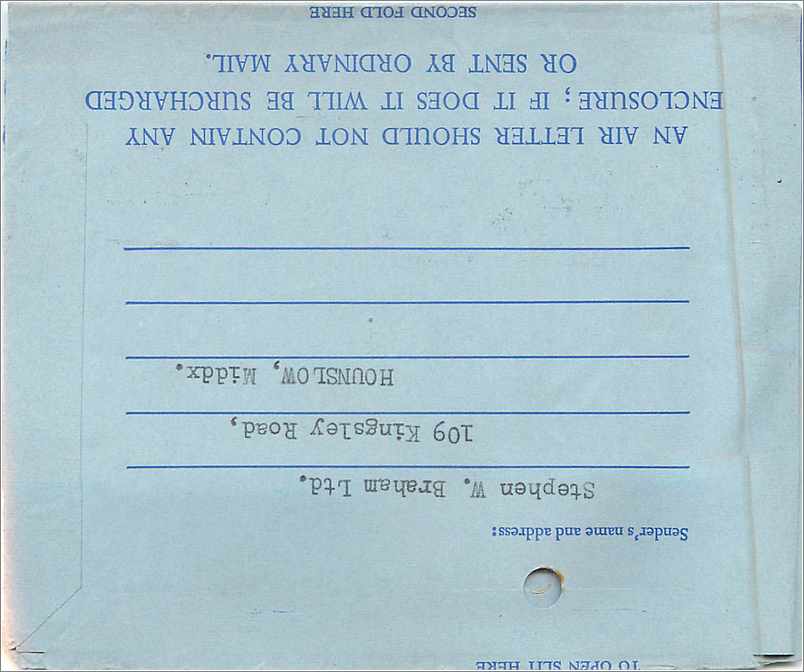 TO OPEN SLIT HERE
Sender's name and address:
Stephen W. Braham Ltd.
109 Kingsley Road,
HOUNSLOW, Middx.
AN AIR LETTER SHOULD NOT CONTAIN ANY
ENCLOSURE; IF IT DOES IT WILL BE SURCHARGED
OR SENT BY ORDINARY MAIL.
SECOND FOLD HERE